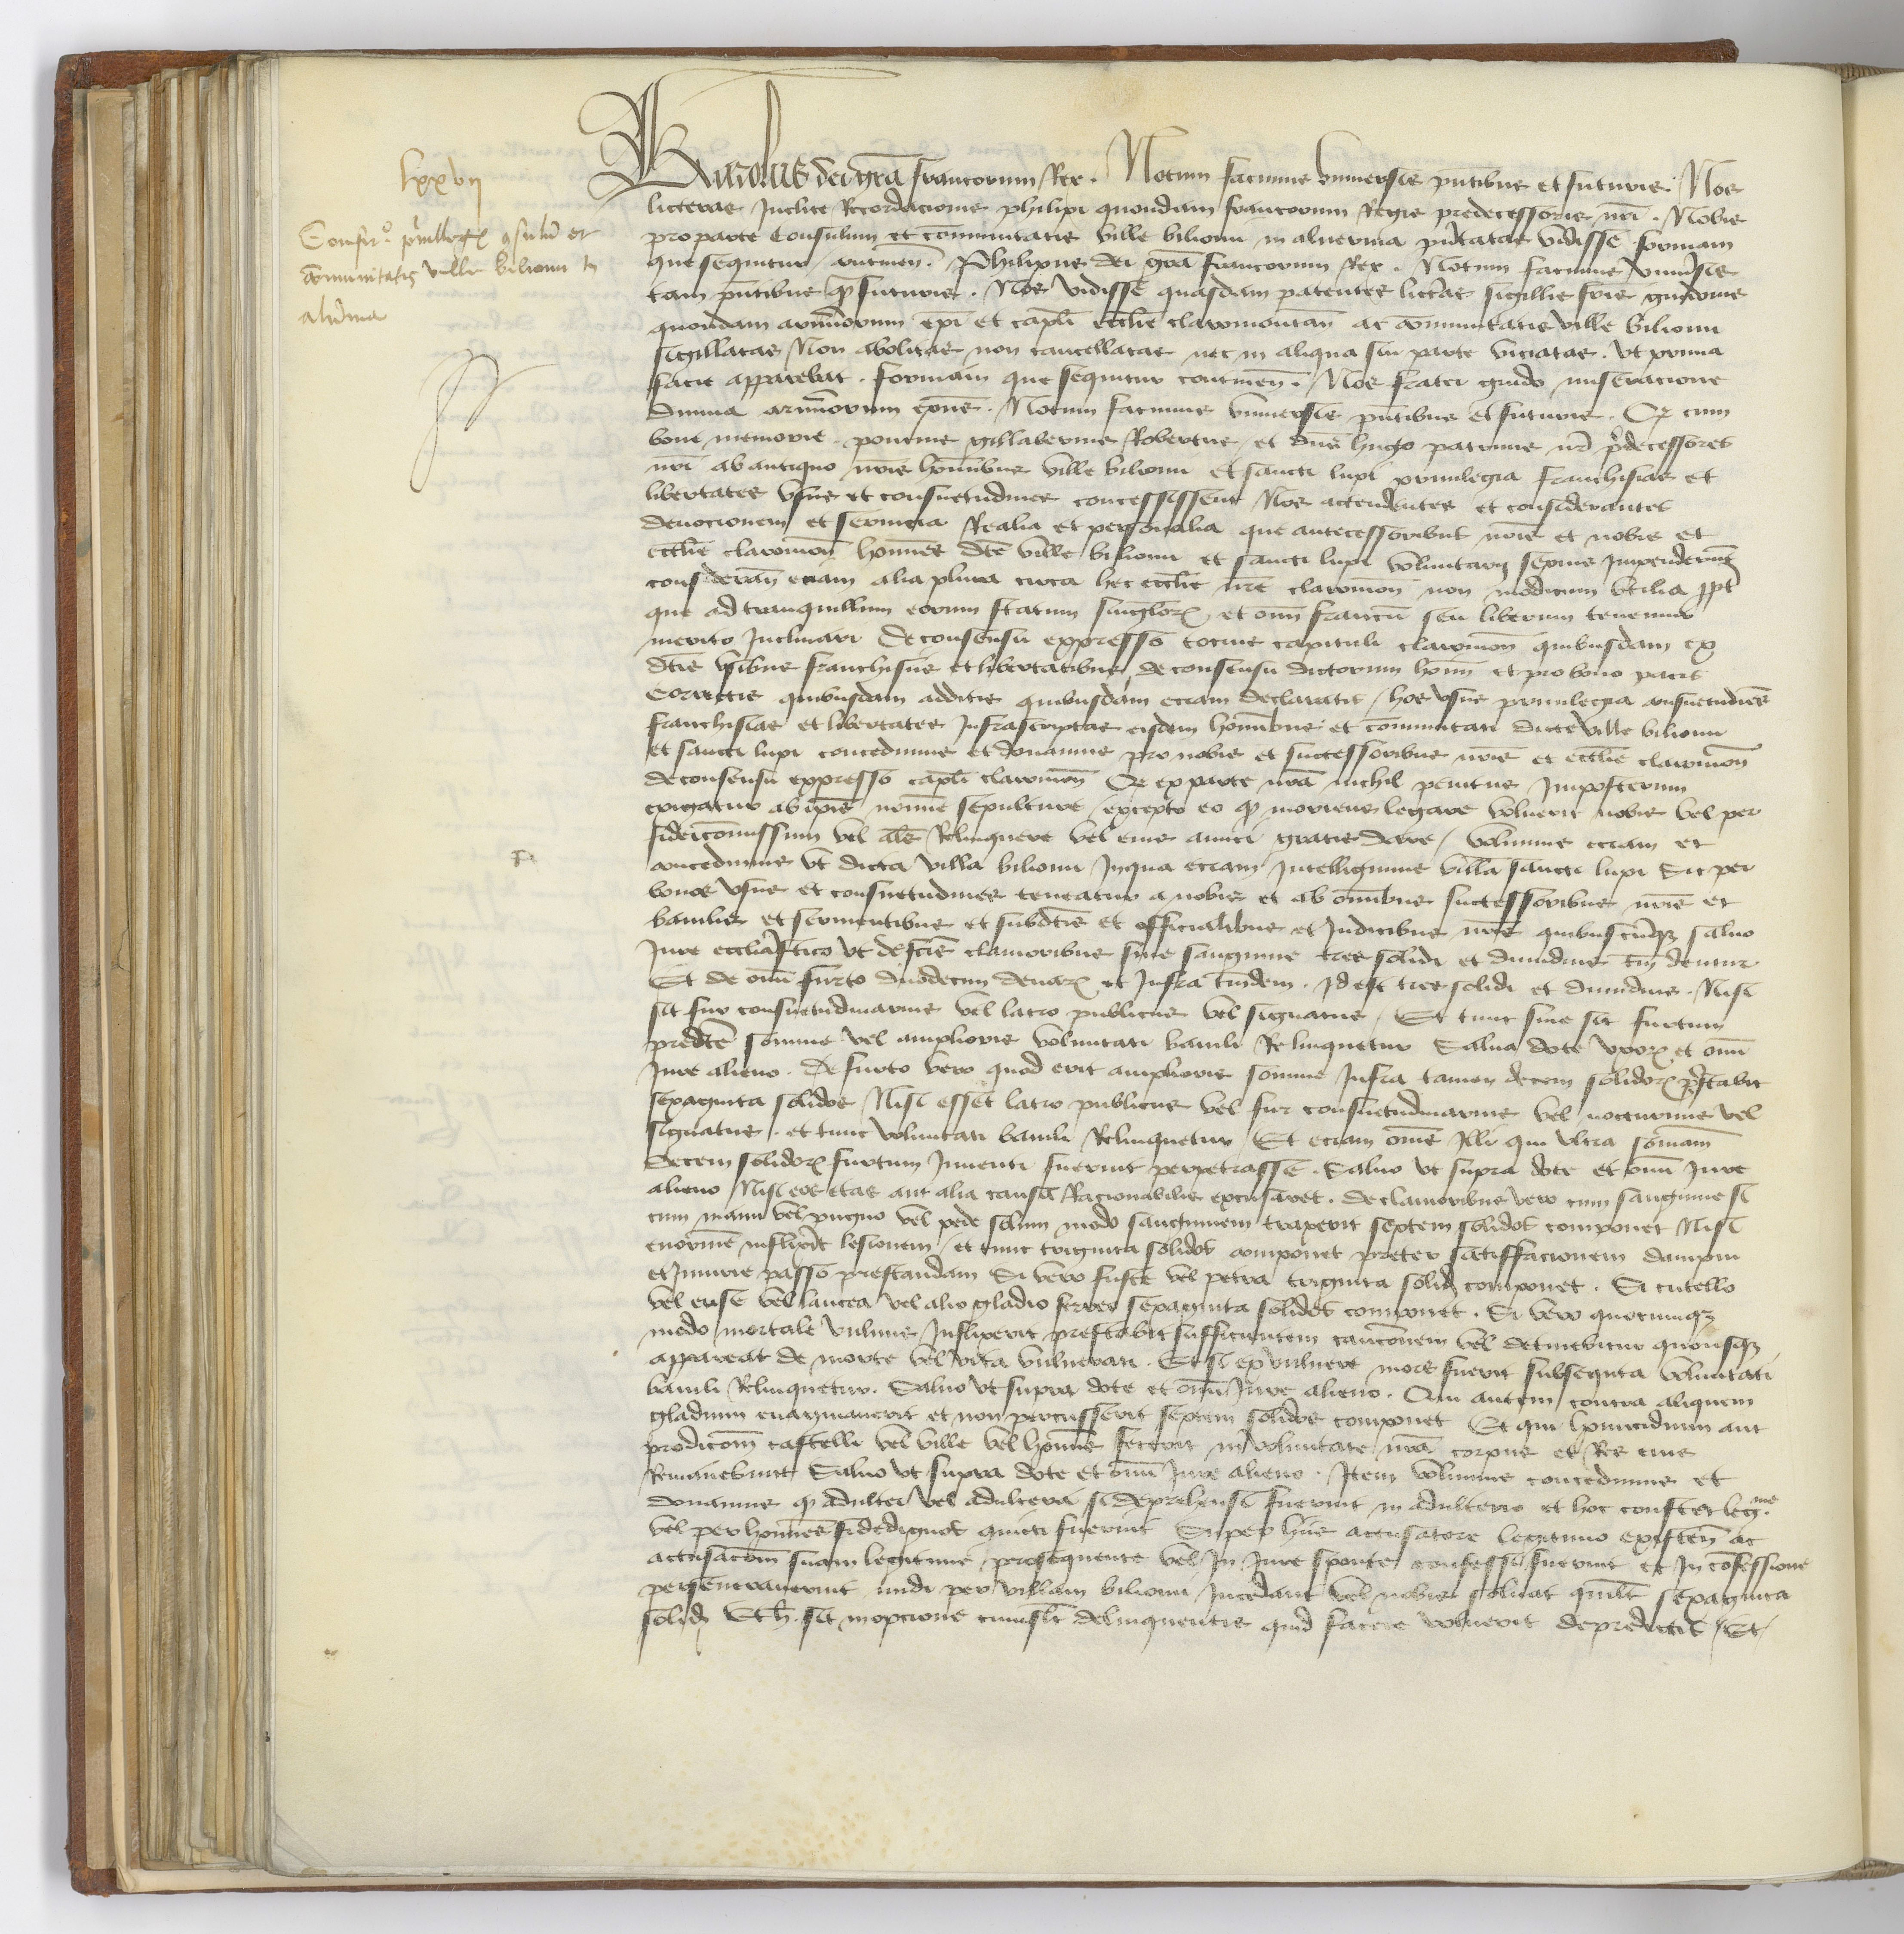 lxxvii
Confir.o privillegior consulu et
communitatis ville billomi in
alvernia
Karolus dei gra francorum Rex. Notum facimus universis pntibus et futuris. Nos
litteras Inclite Recordacionis philipi quondam francorum Regis predecessoris nri. Nobis
pro parte Consulum et communitatis ville billomi in alvernia pntatas vidisse formam
que sequitur continen. Philipus dei gra francorum Rex. Notum facimus universis
tam pntibus q futuris. Nos vidisse quasdam patentes litteras sigillis fris guidonis
quondam arvernorum epi et capli ecclie claromontan ac communitatis ville billomi
sigillatas Non abolitas non cancellatas nec in aliqua sui parte viciatas. Vt prima
facie apparebat. formam que sequitur continen. Nos frater guido miseracione
divina arvernorum epus. Notum facimus universis pntibus et futuris. Q cum
bone memorie poncius gillabertus Robertus et dns hugo patruus nr predecessores
nri ab antiquo nris hominibus ville billomi et sancti lupi privilegia franchisias et
libertates usus et consuetudines concessissent Nos actendentes et considerantes
devocionem et servicia Realia et personalia que antecessoribus nris et nobis et
ecclie claromon homines dce ville billomi et sancti lupi voluntarii sepius Impenderunt
consideran eciam alia plura circa hec ecclie nre claromon non modicum utilia ppt
que ad tranquillum eorum statum singulor et omn francu seu liberum tenemur
merito Inclinari De consensu expresso tocius capituli claromon quibusdam ex
dcis usibus franchisiis et libertatibus de consensu dictorum homi et pro bono pacis
Correctis quibusdam additis quibusdam eciam declaratis / hos usus privilegia consuetudines
franchisias et libertates Infrascriptas eisdem hominibus et communitati dicte ville billomi
et sancti lupi concedimus et donamus pro nobis et successoribus nris et ecclie claromon
de consensu expresso capli claromon Q ex parte nra nichil penitus Imposterum
exigatur ab ipis nomine sepulture excepto eo q moriens legare voluerit nobis vel per
fideicommissum vel als Relinquere vel eius amici gratis dare / volumus eciam et
concedimus vt dicta villa billomi In qua eciam Intelligimus villa sancti lupi Sit per
bonos usus et consuetudines teneatur a nobis et ab omnibus successoribus nris et
baiulis et servientibus et subdtis et officialibus et Judicibus nris quibuscuqz salvo
Jure ecclesiastico Vt de factis clamoribus sine sanguine tres solidi et dimidius tm dentur
Et de omi furto duodecim denar et Infra tmdem. Id est tres solidi et dimidius. Nisi
sit fur consuetudinarius vel latro publicus vel signatus / Et tunc sive sit furtum
predte somme vel amplioris voluntati baiuli Relinquetur Salva dote uxor et omi
Jure alieno. De furto vero quod erit amplioris somme Infra tamen decem solidor pstabit
sexaginta solidos Nisi esset latro publicus vel fur consuetudinarius vel nocturnus vel
signatus. et tunc voluntati baiuli Relinquetur / Et eciam omes Illi qui ultra somam
decem solidor furtum Inventi fuerint perpetrasse. Salvo vt supra dote et omi Jure
alieno Nisi eos etas aut alia causa Racionabilis excusaret. De clamoribus vero cum sanguine si
cum manu vel pugno vel pede solum modo sanguinem traxerit septem solidos componet Nisi
enorme inflixit lesionem / et tunc triginta solidos componet preter satisffacionem dampni
et Iniurie passo prestandam Si vero fuste vel petra triginta solid componet. Si cutello
vel ense vel lancea vel alio gladio ferreo sexaginta solidos componet. Si vero quocumqz
modo mortale vulnus Inflixerit prestabit sufficientem caucionem vel detinebitur quousqz
appareat de morte vel vita vulnerati. Et si ex vulnere mors fuerit subsequta voluntati
baiuli Relinquetur. Salvo vt supra dote et omi Jure alieno. Qui autem contra aliquem
gladium evaginaverit et non percusserit septem solidos componet Et qui homicidium aut
prodicom castelli vel ville vel homis fecerit in voluntate nra corpus et Res eius
Remanebunt Salvo vt supra dote et omi Jure alieno. Item volumus concedimus et
donamus q adulter vel adultera si deprehensi fuerint in adulterio et hoc constet leg.me
vel per homines fidedignos quicti fuerint Super hiis accusatore legitimo existen ac
accusacom suam legitime prosequente vel In Jure sponte confessi fuerint et In cofessione
perseneraverint nudi per villam billomi Incedant vel nobis solvat quilt sexaginta
solid Et h. sit in opcione cuiuslt delinquentis quid facere voluerit de predictis / Et